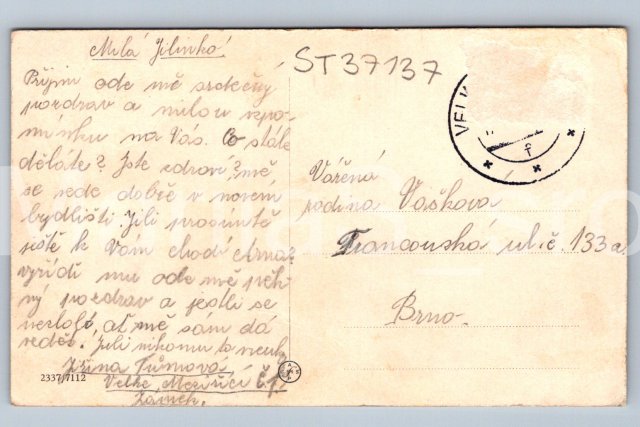 Milá Jilinko!
Přijmi ode mě srdečný
pozdrav a milou vzpo-
mínku na Vás. Co stále
děláte? Jste zdraví? mě
se vede dobře v novém
bydlišti Jili prosím tě
ještě k Vám chodí
vyřídi mu ode mě pěk-
ný pozdrav a jestli se
nezlobí, ať mě sám dá
vědět. Jili nikomu to
Jiřina Tůmová
Velké Meziříčí č1
Zámek.
2337/7112
ST37137
VELK
Vážená
rodina Vašková
Francouská ulič. 133a
Brno.